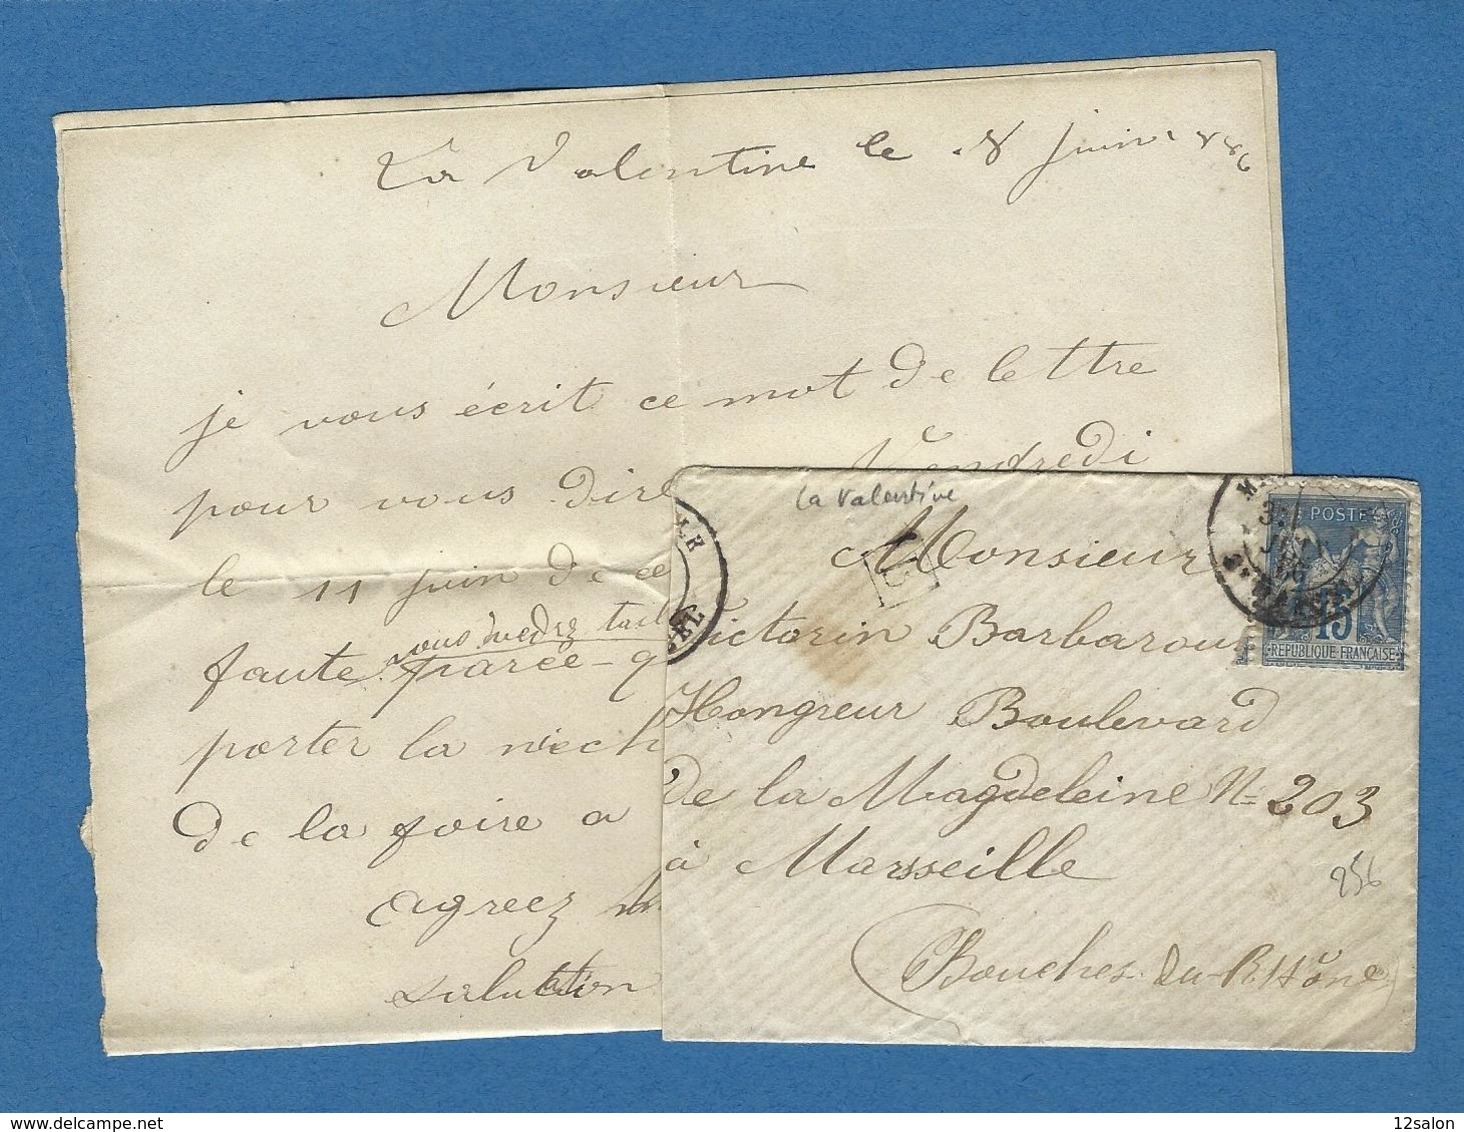 La Valentine le 8 juin 1886
Monsieur
je vous écrit ce mot de lettre
pour vous dire Vendredi
le 11 juin de ce
vous
faute parce-q
porter la
de la foire a
agreez
salutation
La Valentine
Monsieur
Victorin Barbaroux
Hongreur Boulevard
de la Magdeleine N= 203
à Marseille
Bouches-du-Rhône
256
POSTE
15
REPUBLIQUE FRANÇAISE
12salon